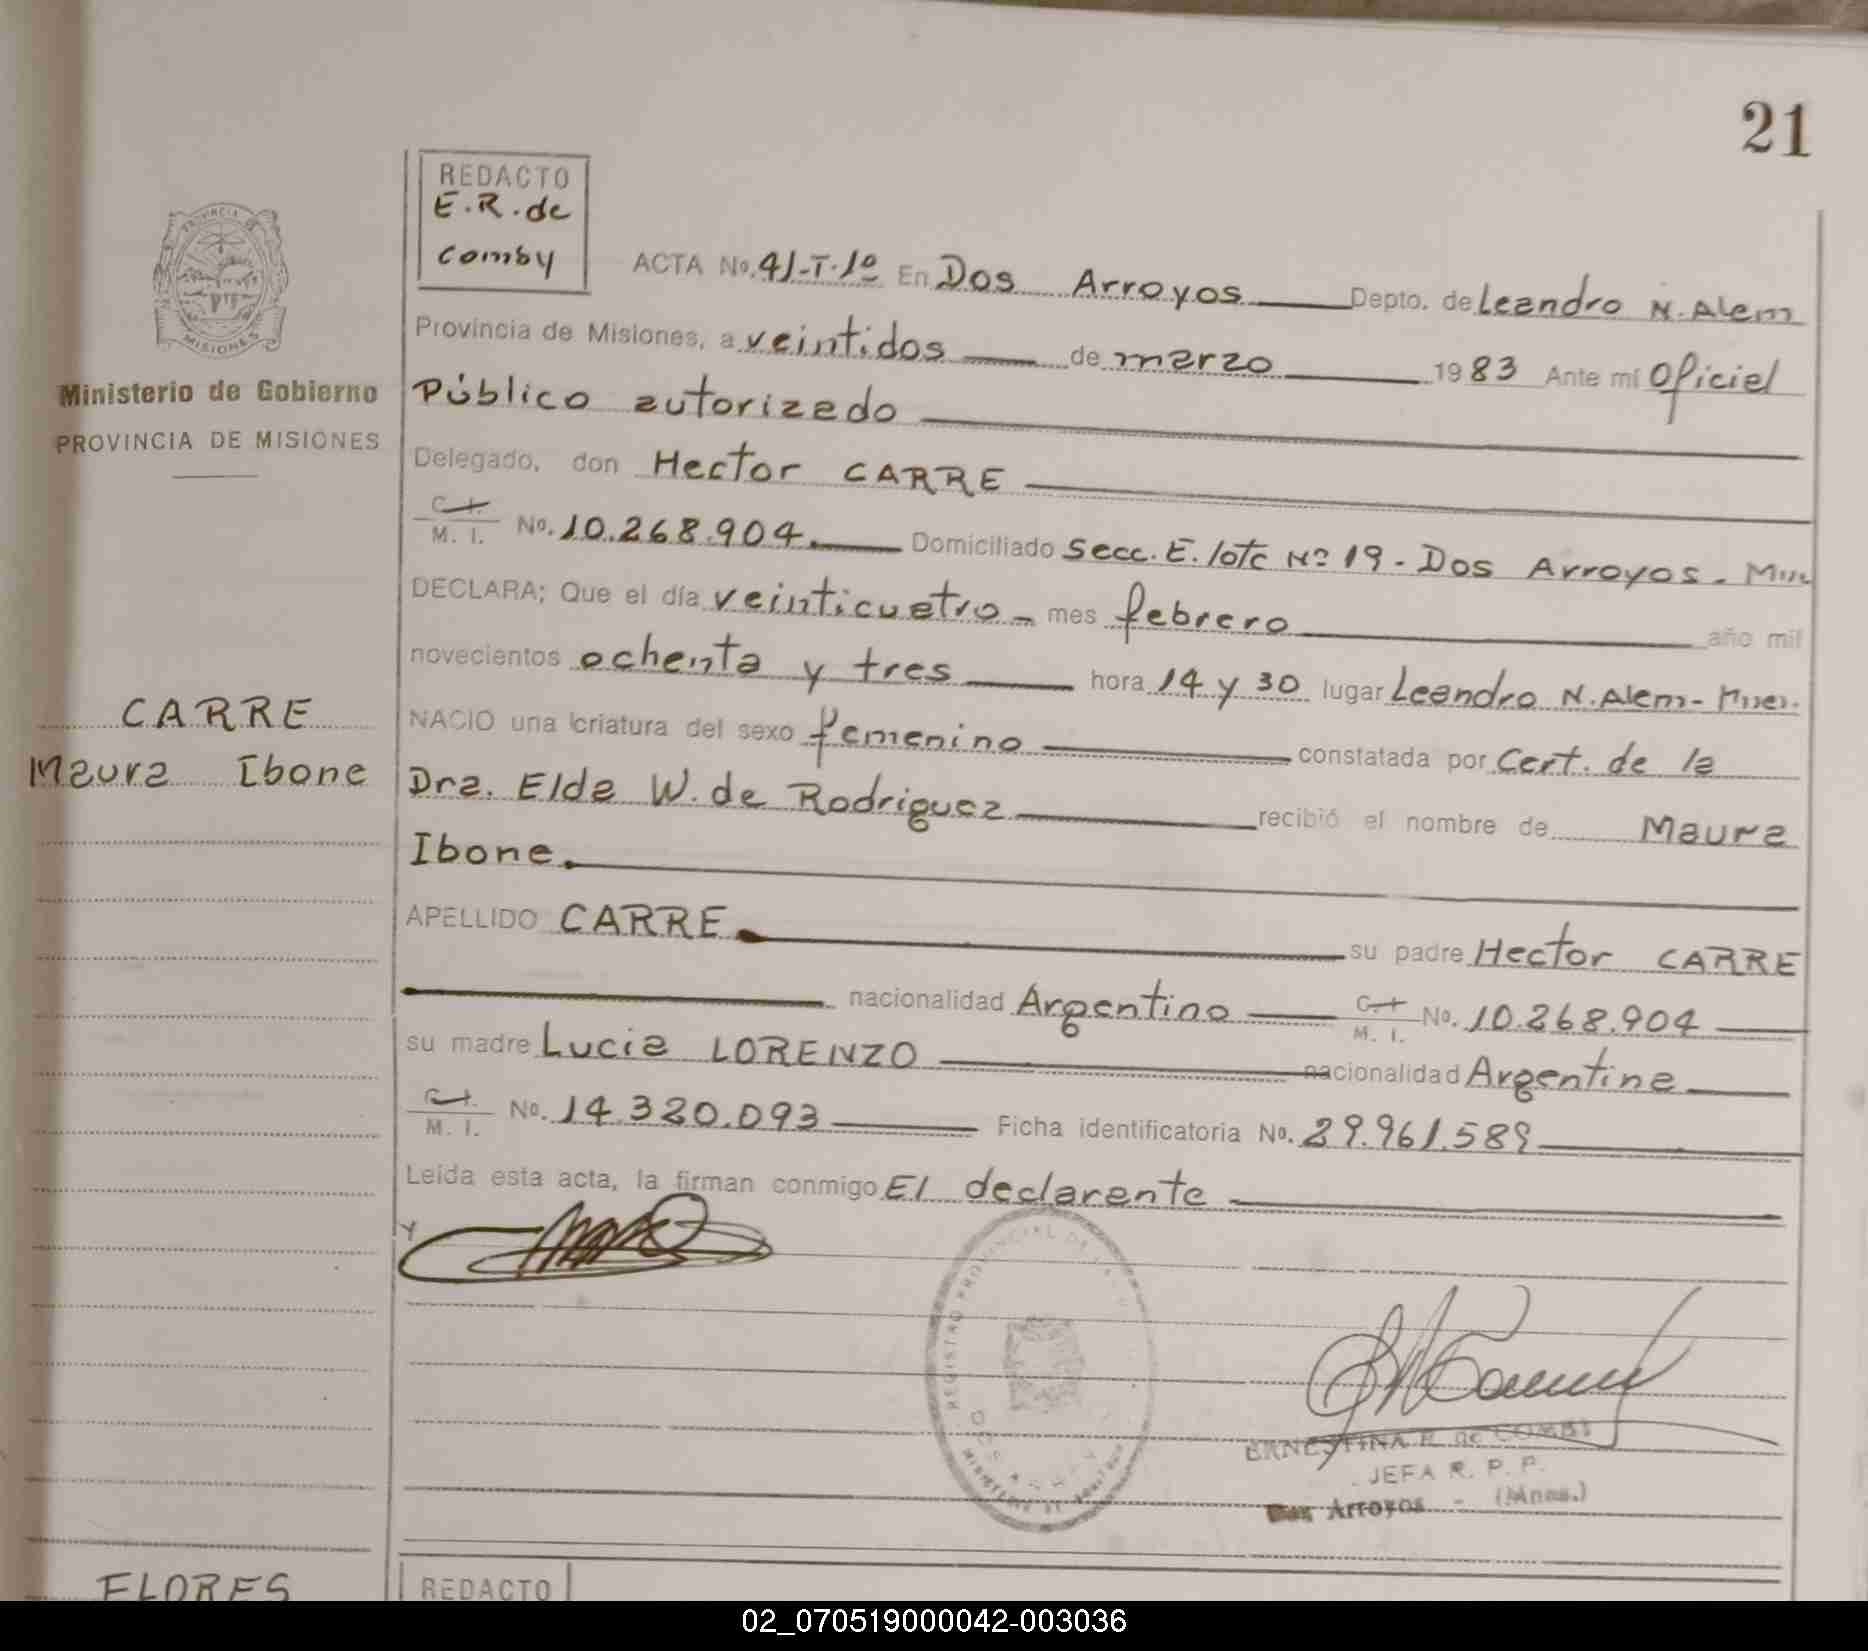 21
REDACTO
E.R. de
Comby
PROVINCIA
MISIONES
Ministerio de Gobierno
PROVINCIA DE MISIONES
ACTA No. 41-T.1º En Dos Arroyos Depto. de Leandro N. Alem
Provincia de Misiones, a veintidos de marzo 1983 Ante mí Oficial
Público autorizado
Delegado, don Hector CARRE
C.I. M. I. No. 10.268.904. Domiciliado Secc. E. lote Nº 19 - Dos Arroyos -
DECLARA; Que el día veinticuatro - mes febrero año mil
novecientos ochenta y tres hora 14 y 30 lugar Leandro N. Alem-
CARRE
Maura Ibone
NACIO una criatura del sexo femenino constatada por Cert. de la
Dra. Elda W. de Rodriguez recibió el nombre de Maura
Ibone.
APELLIDO CARRE su padre Hector CARRE
nacionalidad Argentino C.I. M. I. No. 10.268.904
su madre Lucia LORENZO nacionalidad Argentina
C.I. M. I. No. 14.320.093 Ficha identificatoria No. 29.961.589
Leída esta acta, la firman conmigo El declarante
REGISTRO PROVINCIAL DE
ERNESTINA R. de COMBI
JEFA R. P. P.
Dos Arroyos - (Mnes.)
FLORES
REDACTO
02_070519000042-003036